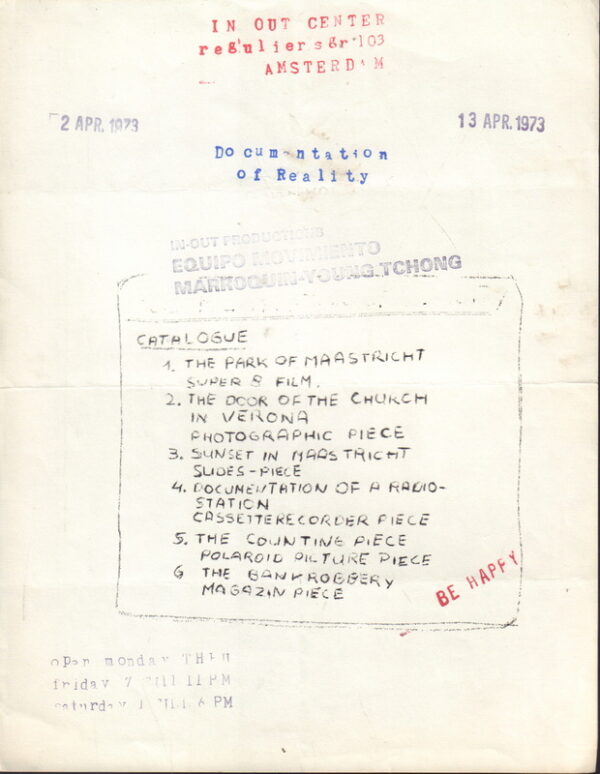 IN OUT CENTER
reguliersgr 103
AMSTERDAM
2 APR. 1973
13 APR. 1973
Documentation
of Reality
IN-OUT PRODUCTIONS
EQUIPO MOVIMIENTO
MARROQUIN-YOUNG.TCHONG
CATALOGUE
1. THE PARK OF MAASTRICHT
SUPER 8 FILM.
2. THE DOOR OF THE CHURCH
IN VERONA
PHOTOGRAPHIC PIECE
3. SUNSET IN MAASTRICHT
SLIDES-PIECE
4. DOCUMENTATION OF A RADIO-
STATION
CASSETTERECORDER PIECE
5. THE COUNTINE PIECE
POLAROID PICTURE PIECE
6 THE BANKROBBERY
MAGAZIN PIECE
BE HAPPY
open monday THRU
friday 7 TILL 11 PM
saturday 1 TILL 6 PM